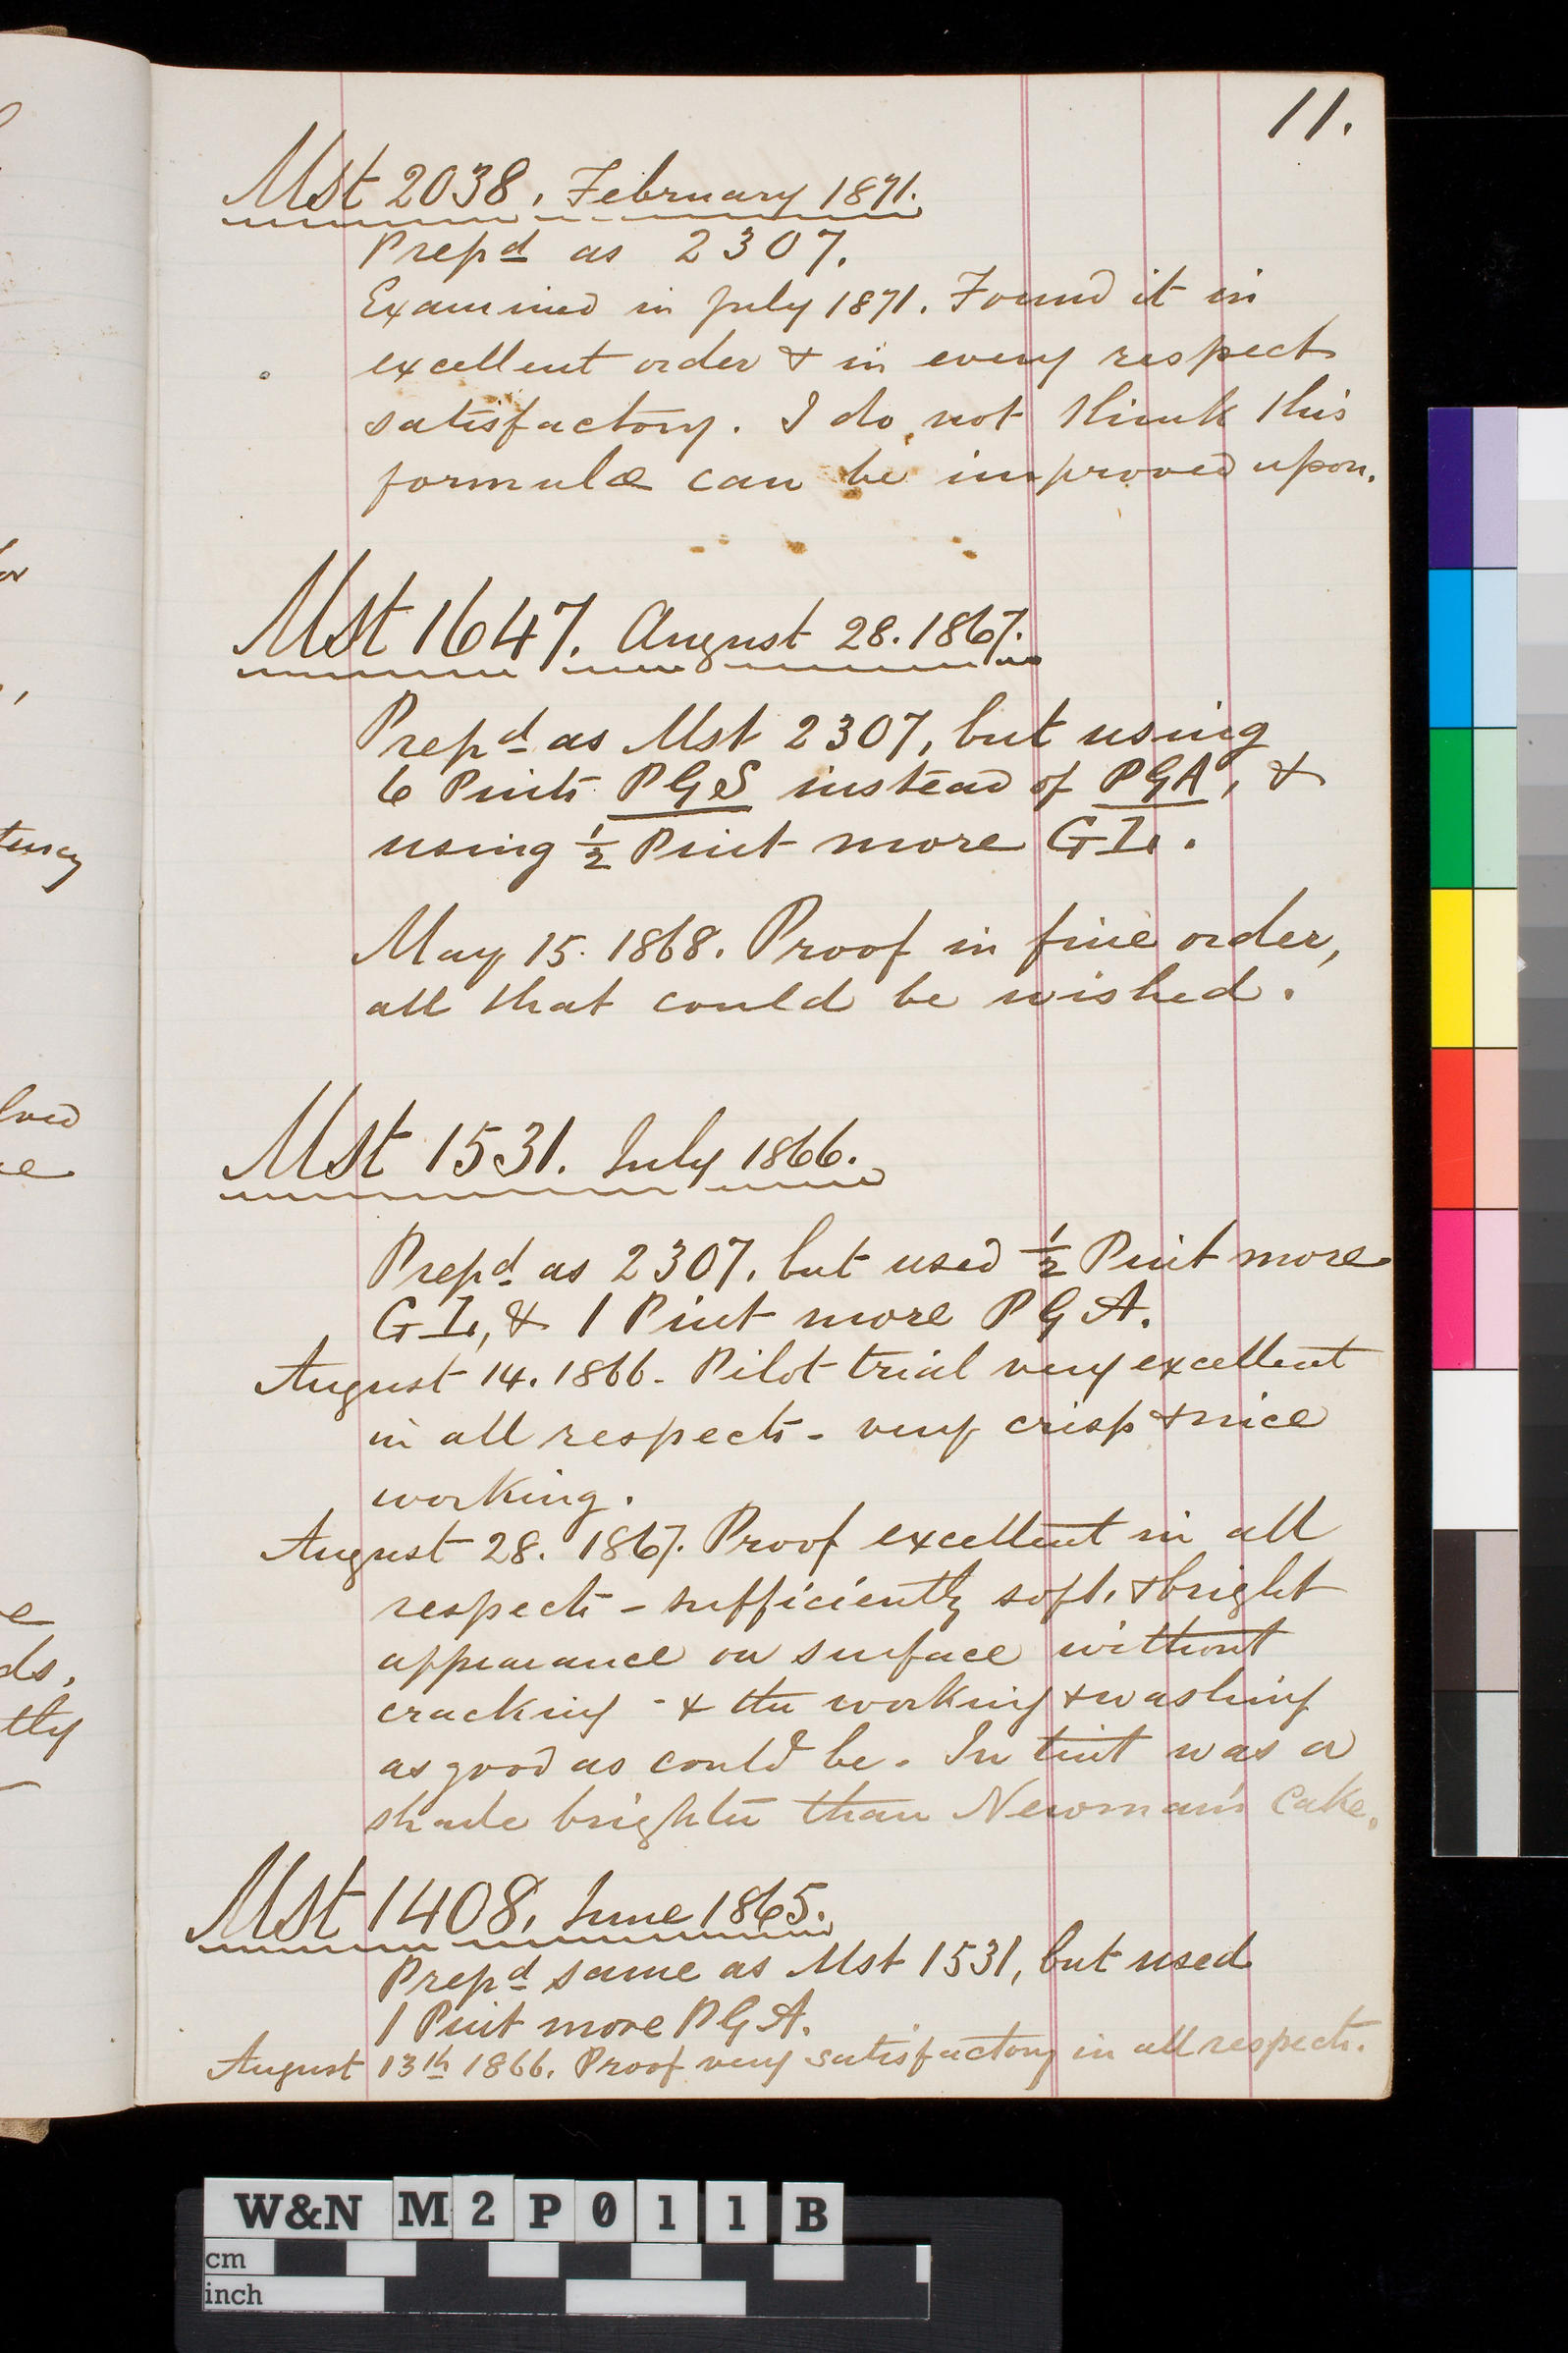 11.
Mst 2038. February 1871.
Prepd as 2307.
Examined in July 1871. Found it in
excellent order & in every respect
satisfactory. I do not think this
formula can be improved upon.
Mst 1647. August 28. 1867.
Prepd as Mst 2307, but using
6 Pints PGS instead of PGA, &
using ½ Pint more GL.
May 15. 1868. Proof in fine order,
all that could be wished.
Mst 1531. July 1866.
Prepd as 2307, but used ½ Pint more
GL, & 1 Pint more PGA.
August 14. 1866. Pilot trial very excellent
in all respects - very crisp & nice
working.
August 28. 1867. Proof excellent in all
respects - sufficiently soft, & bright
appearance on surface without
cracking - & the working & washing
as good as could be. In tint was a
shade brighter than Newman's Cake.
Mst 1408. June 1865.
Prepd same as Mst 1531, but used
1 Pint more PGA.
August 13th 1866. Proof very satisfactory in all respects.
W&N M2P011B
cm
inch